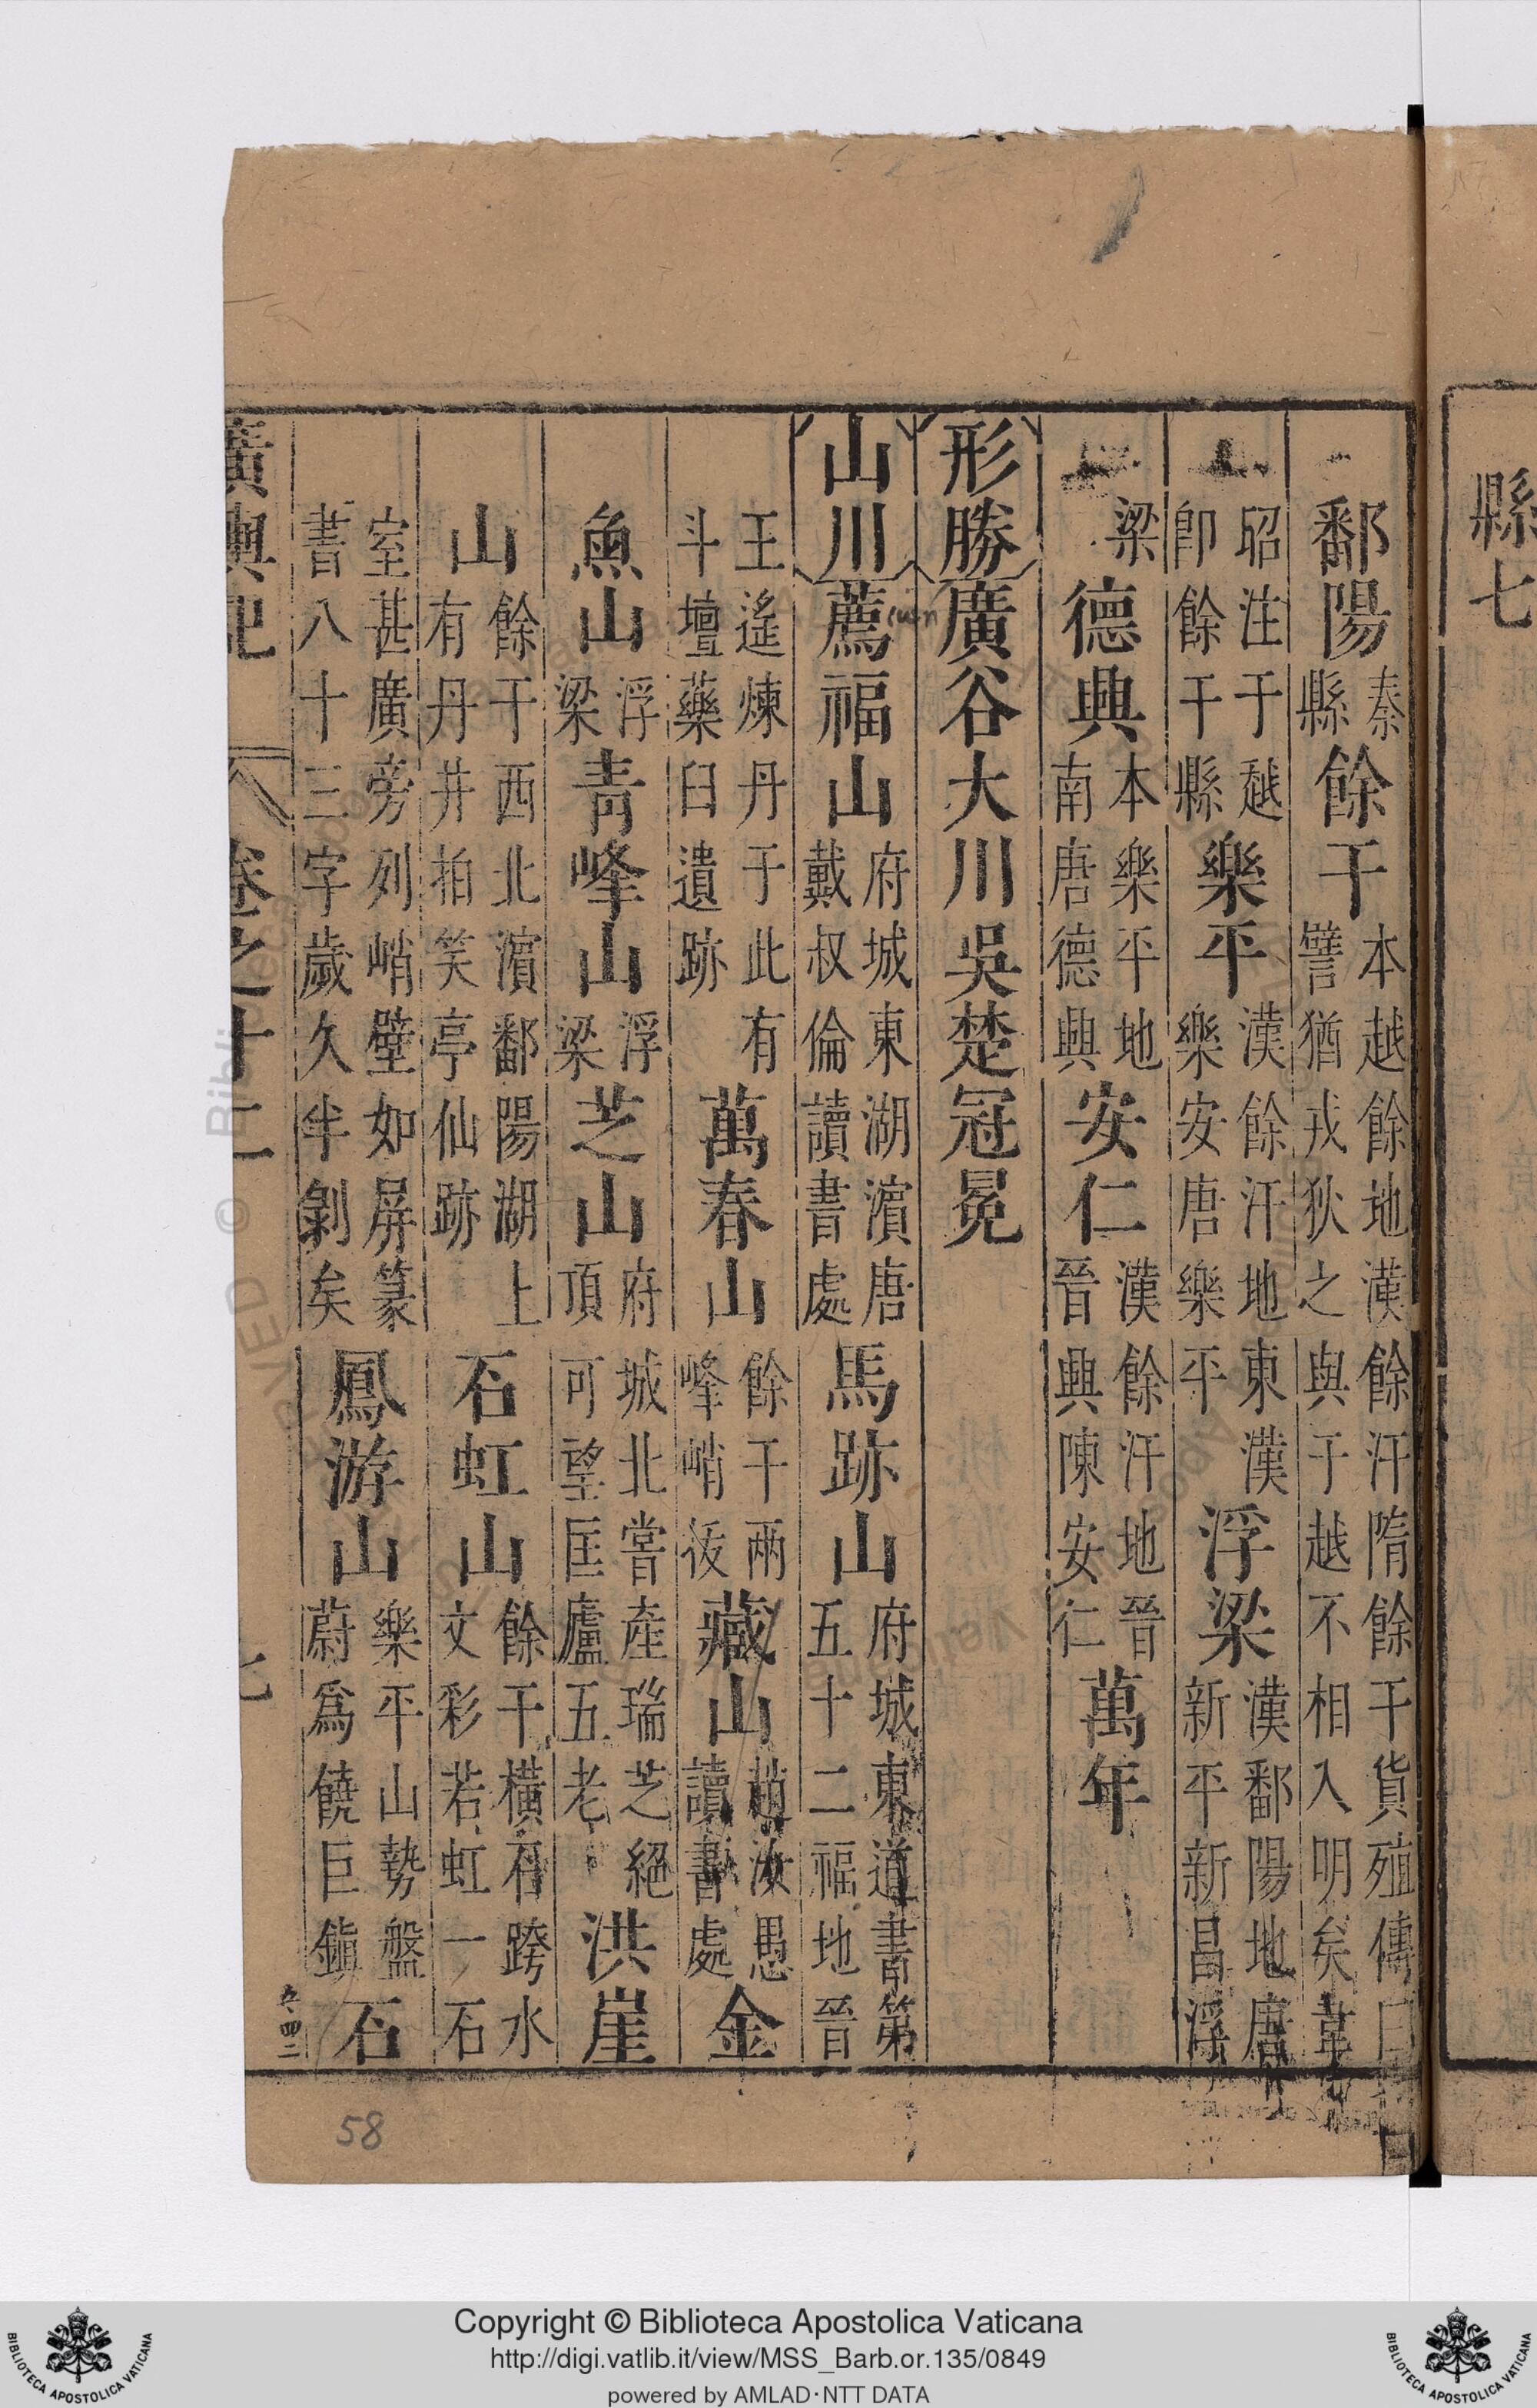 縣七
鄱陽秦縣餘干本越餘地漢餘汗隋餘干貨殖傳曰譬猶戎狄之與于越不相入明矣韋
昭注于越卽餘干縣樂平漢餘汗地東漢樂安唐樂平浮梁漢鄱陽地唐新平新昌浮
梁德興本樂平地南唐德興安仁漢餘汗地晉晉興陳安仁萬年
形勝廣谷大川吳楚冠冕
山川薦福山府城東湖濵唐戴叔倫讀書處馬跡山府城東道書第五十二福地晉
王遙煉丹于此有斗壇藥臼遺跡萬春山餘干兩峰峭拔藏山趙汝愚讀書處金
魚山浮梁靑峰山浮梁芝山府城北嘗產瑞芝絕頂可望匡廬五老洪崖
山餘干西北濵鄱陽湖上有丹井拍笑亭仙跡石虹山餘干橫石跨水文彩若虹一石
室甚廣旁列峭壁如屏篆書八十三字歲久半剝矣鳳游山樂平山勢盤蔚爲饒巨鎭石
廣輿記 卷之十二 七
58
Copyright © Biblioteca Apostolica Vaticana
http://digi.vatlib.it/view/MSS_Barb.or.135/0849
powered by AMLAD·NTT DATA
BIBLIOTECA APOSTOLICA VATICANA
BIBLIOTECA APOSTOLICA VATICANA